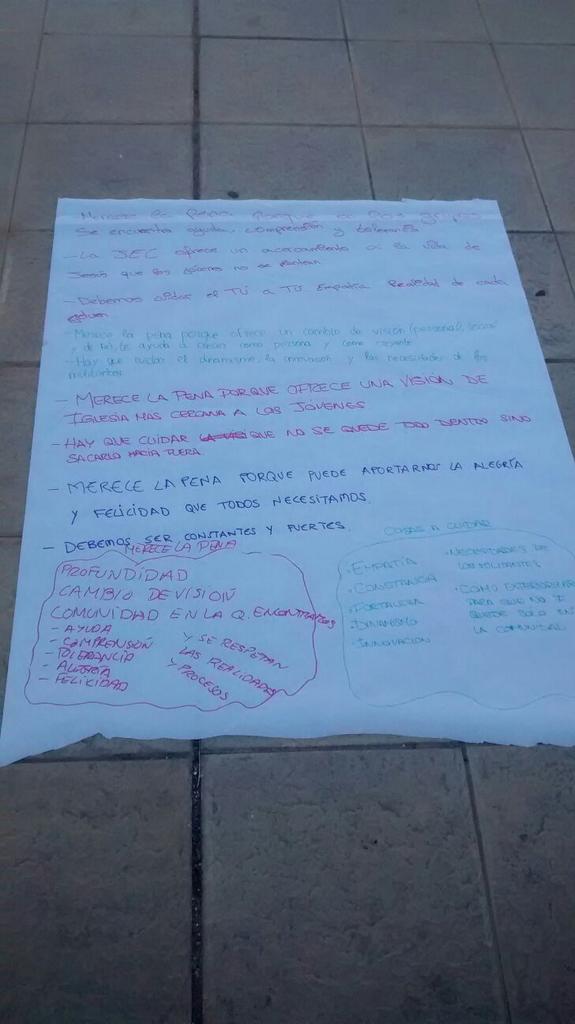 Merece la pena porque en los grupos
se encuentra ayuda, comprensión y tolerancia
- La JEC ofrece un acercamiento a la vida de
Jesús que los jóvenes no se plantean
- Debemos cuidar el TÚ a TÚ. Empatía Realidad de cada
- Merece la pena porque ofrece un cambio de visión (personal,
y de fe), te ayuda a crecer como persona y como creyente
- Hay que cuidar el dinamismo, la innovación y las necesidades de los
militantes
- MERECE LA PENA PORQUE OFRECE UNA VISIÓN DE
IGLESIA MAS CERCANA A LOS JÓVENES
- HAY QUE CUIDAR QUE NO SE QUEDE TODO DENTRO SINO
SACARLO HACIA FUERA.
- MERECE LA PENA PORQUE PUEDE APORTARNOS LA ALEGRÍA
Y FELICIDAD QUE TODOS NECESITAMOS.
- DEBEMOS SER CONSTANTES Y FUERTES.
MERECE LA PENA
PROFUNDIDAD
CAMBIO DE VISIÓN
COMUNIDAD EN LA Q. ENCONTRAMOS
- AYUDA
- COMPRENSIÓN
- TOLERANCIA
- ALEGRÍA
- FELICIDAD
Y SE RESPETAN
LAS REALIDADES
Y PROCESOS
COSAS A CUIDAR
· EMPATÍA
· CONSTANCIA
· FORTALEZA
· DINAMISMO
· INNOVACIÓN
· NECESIDADES DE
LOS MILITANTES
· COMO
PARA QUE NO SE
QUEDE SOLO EN
LA COMUNIDAD